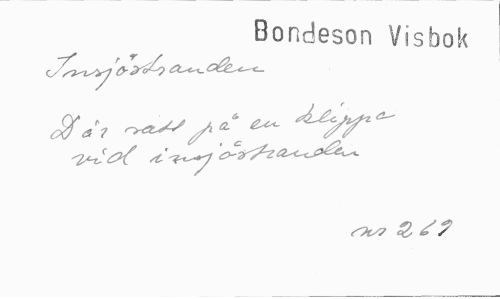 Bondeson Visbok
Insjöstranden
Där satt på en klippa
vid insjöstranden
nr 269